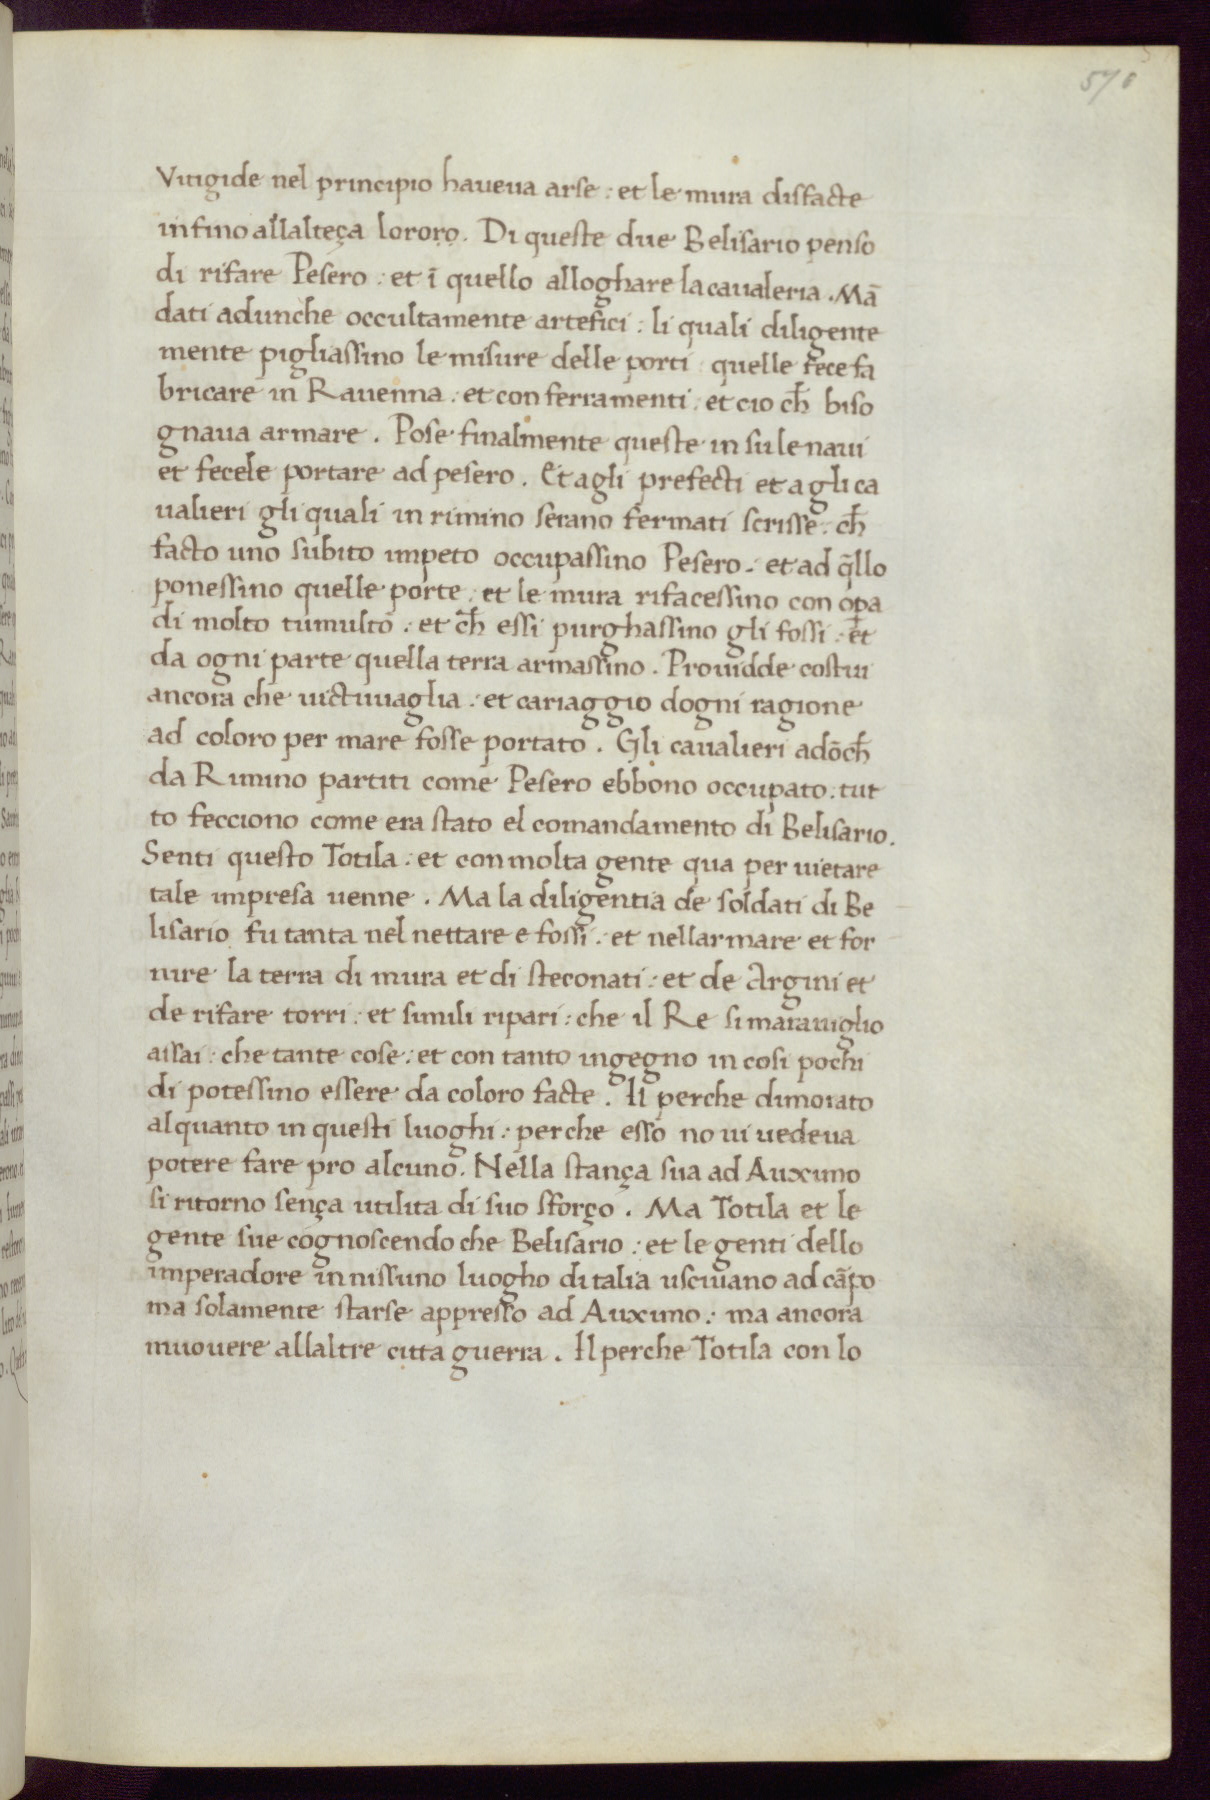 Vitigide nel principio haveva arse : et le mura disfacte
infino allalteça lororo. Di queste due Belisario penso
di rifare Pesero : et ī quello alloghare la cavaleria . Mā
dati adunche occultamente artefici : li quali diligente
mente pigliassino le misure delle porti quelle fece fa
bricare in Ravenna : et con ferramenti : et cio ch̄ biso
gnava armare . Pose finalmente queste in su le navi
et fecele portare ad pesero . Et agli prefecti et agli ca
ualieri gli quali in rimino serano fermati scrisse : ch̄
facto uno subito impeto occupassino Pesero : et ad q̄llo
ponessino quelle porte : et le mura rifacessino con oꝑa
di molto tumulto : et ch̄ essi purghassino gli fossi : et
da ogni parte quella terra armassino . Providde costui
ancora che victuvaglia : et cariaggio dogni ragione
ad coloro per mare fosse portato . Gli cavalieri adōch̄
da Rimino partiti come Pesero ebbono occupato . tut
to fecciono come era stato el comandamento di Belisario.
Senti questo Totila : et con molta gente qua per vietare
tale impresa venne . Ma la diligentia de soldati di Be
lisario fu tanta nel nettare e fossi : et nellarmare et for
nire la terra di mura et di steconati : et de Argini et
de rifare torri : et simili ripari : che il Re si maraviglio
assai : che tante cose : et con tanto ingegno in cosi pochi
di potessino essere da coloro facte . Il perche dimorato
alquanto in questi luoghi : perche esso no vi vedeva
potere fare pro alcuno . Nella stança sua ad Auximo
si ritorno sença utilita di suo sforço . Ma Totila et le
gente sue cognoscendo che Belisario : et le genti dello
imperadore in nissuno luogho ditalia uscivano ad cāpo
ma solamente starse appresso ad Auximo : ma ancora
muovere allaltre citta guerra . Il perche Totila con lo